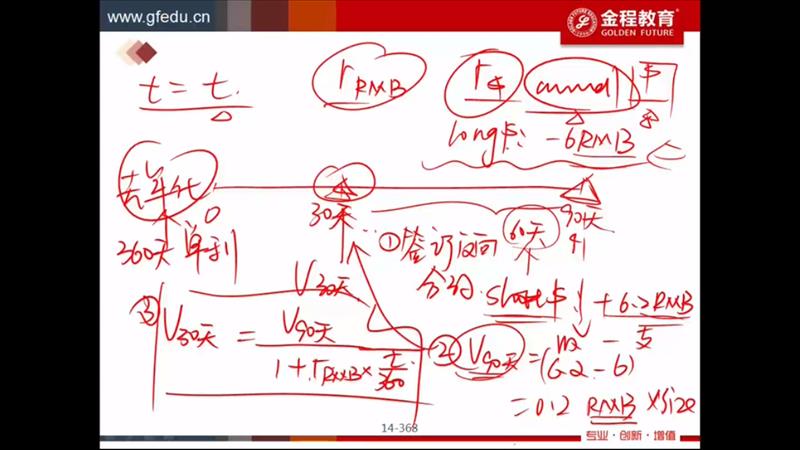 www.gfedu.cn
金程教育
GOLDEN FUTURE
t = t
r RMB
r $
annual
$
long $: -6RMB
0
30天
90天
360天 单利
① 签订反向
60天
合约
short $: +6.2RMB
V30天
③ V30天 = V90天
1 + rRMB × t/360
② V90天 = (6.2 - 6)
= 0.2 RMB × size
14-368
专业·创新·增值